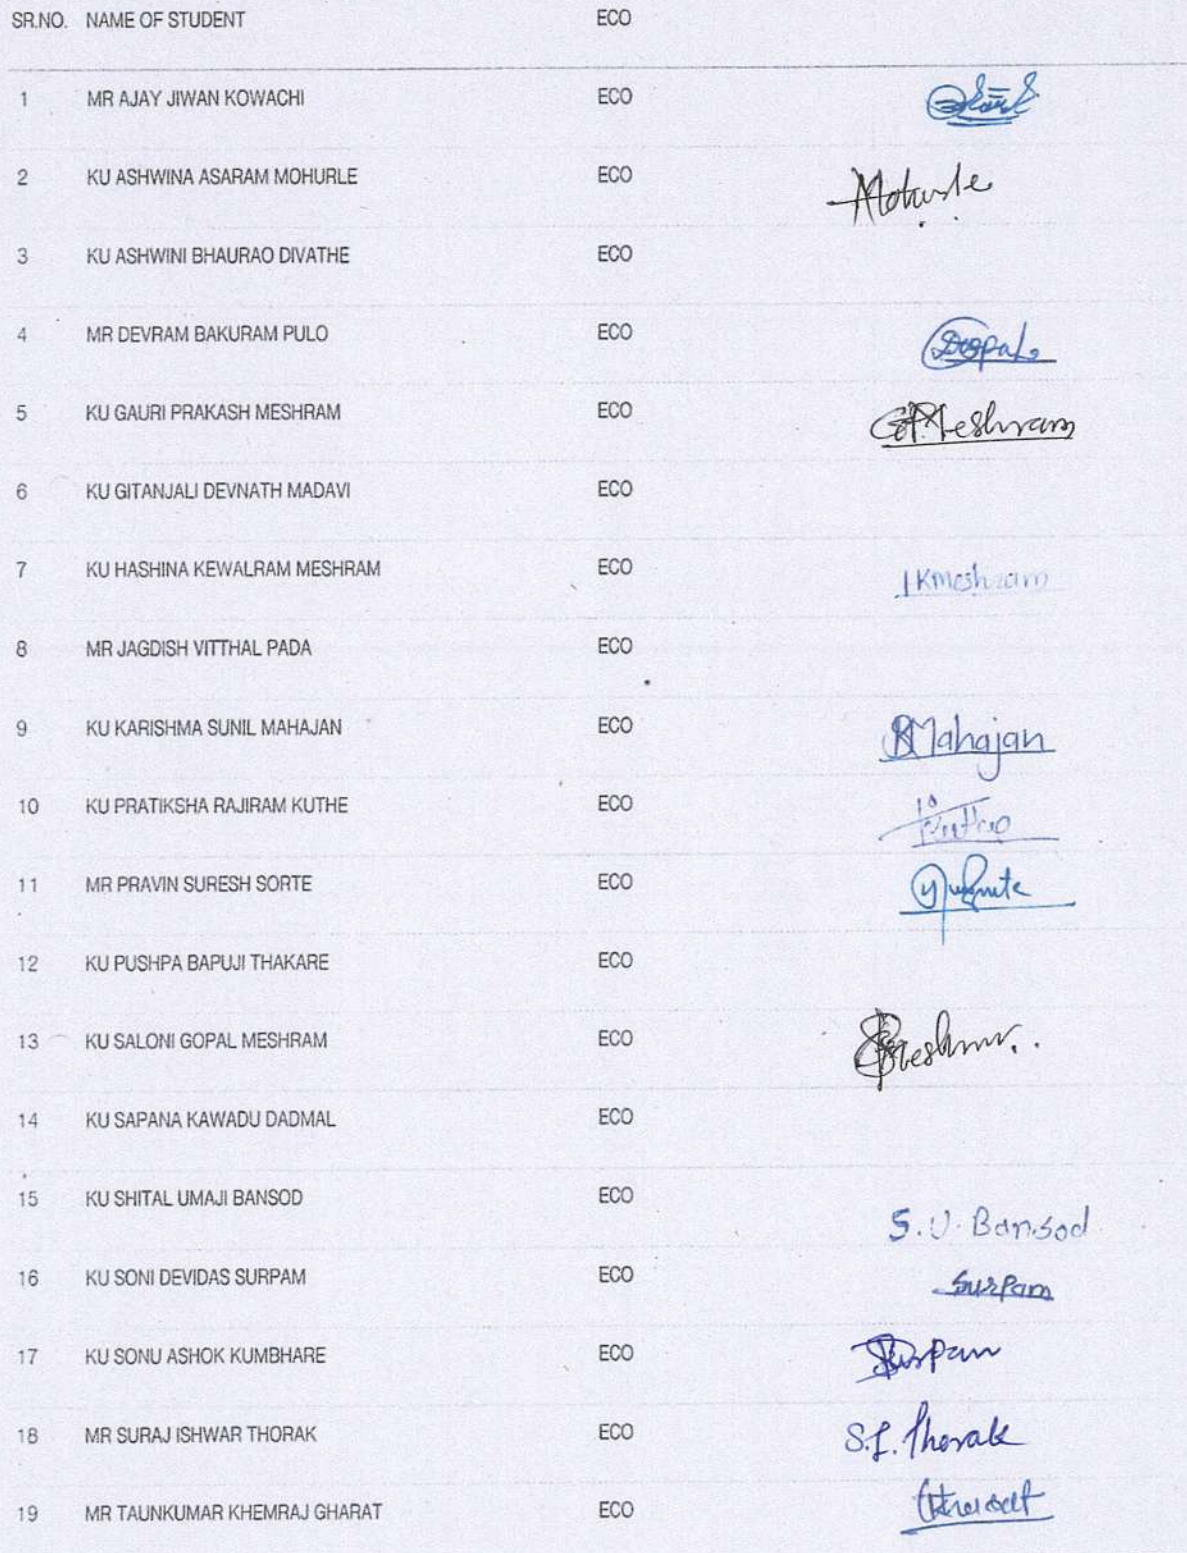 SR.NO. NAME OF STUDENT ECO
1 MR AJAY JIWAN KOWACHI ECO
2 KU ASHWINA ASARAM MOHURLE ECO Mohurle
3 KU ASHWINI BHAURAO DIVATHE ECO
4 MR DEVRAM BAKURAM PULO ECO
5 KU GAURI PRAKASH MESHRAM ECO G.P.Meshram
6 KU GITANJALI DEVNATH MADAVI ECO
7 KU HASHINA KEWALRAM MESHRAM ECO HKmeshram
8 MR JAGDISH VITTHAL PADA ECO
9 KU KARISHMA SUNIL MAHAJAN ECO Mahajan
10 KU PRATIKSHA RAJIRAM KUTHE ECO
11 MR PRAVIN SURESH SORTE ECO
12 KU PUSHPA BAPUJI THAKARE ECO
13 KU SALONI GOPAL MESHRAM ECO
14 KU SAPANA KAWADU DADMAL ECO
15 KU SHITAL UMAJI BANSOD ECO S.U. Bansod
16 KU SONI DEVIDAS SURPAM ECO Surpam
17 KU SONU ASHOK KUMBHARE ECO
18 MR SURAJ ISHWAR THORAK ECO S.I. Thorak
19 MR TAUNKUMAR KHEMRAJ GHARAT ECO